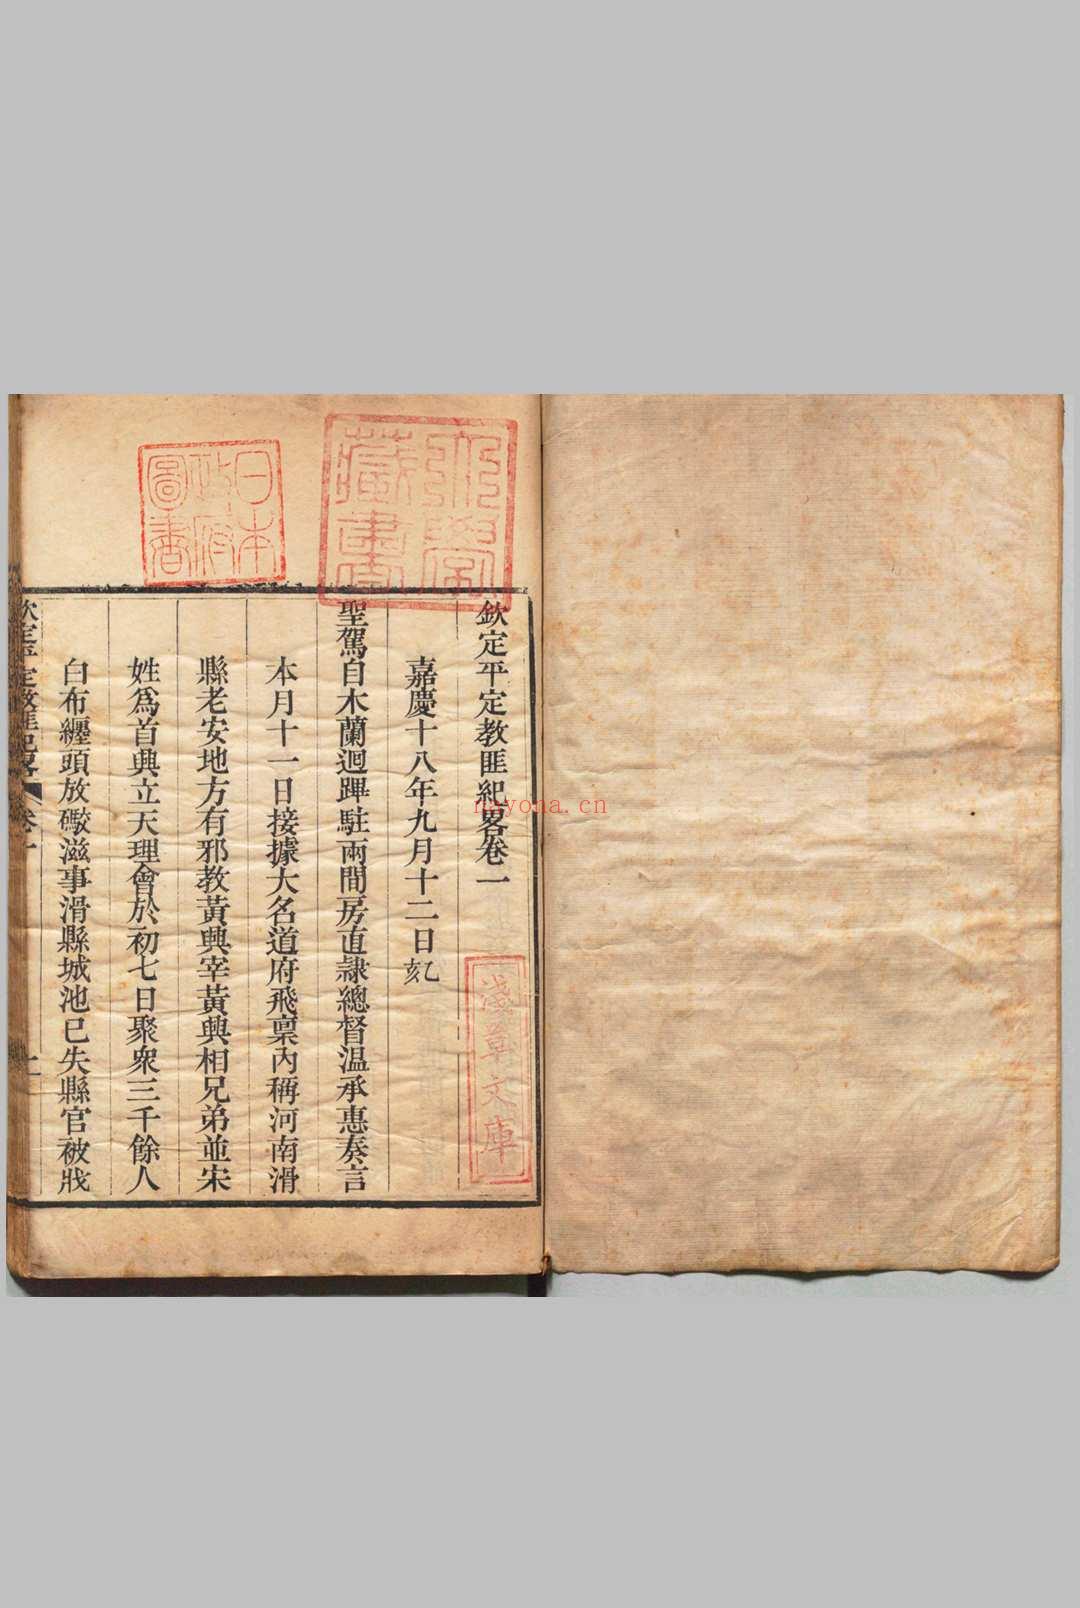 欽定平定教匪紀畧卷一
嘉慶十八年九月十二日乙亥
聖駕自木蘭迴蹕駐兩間房直隷總督温承惠奏言
本月十一日接據大名道府飛稟內稱河南滑
縣老安地方有邪教黃興宰黃興相兄弟並宋
姓爲首興立天理會於初七日聚衆三千餘人
白布纏頭放礮滋事滑縣城池已失縣官被戕
欽定平定教匪紀畧
卷一
一
日本
政府
圖書
藏書
淺草文庫
nayona.cn